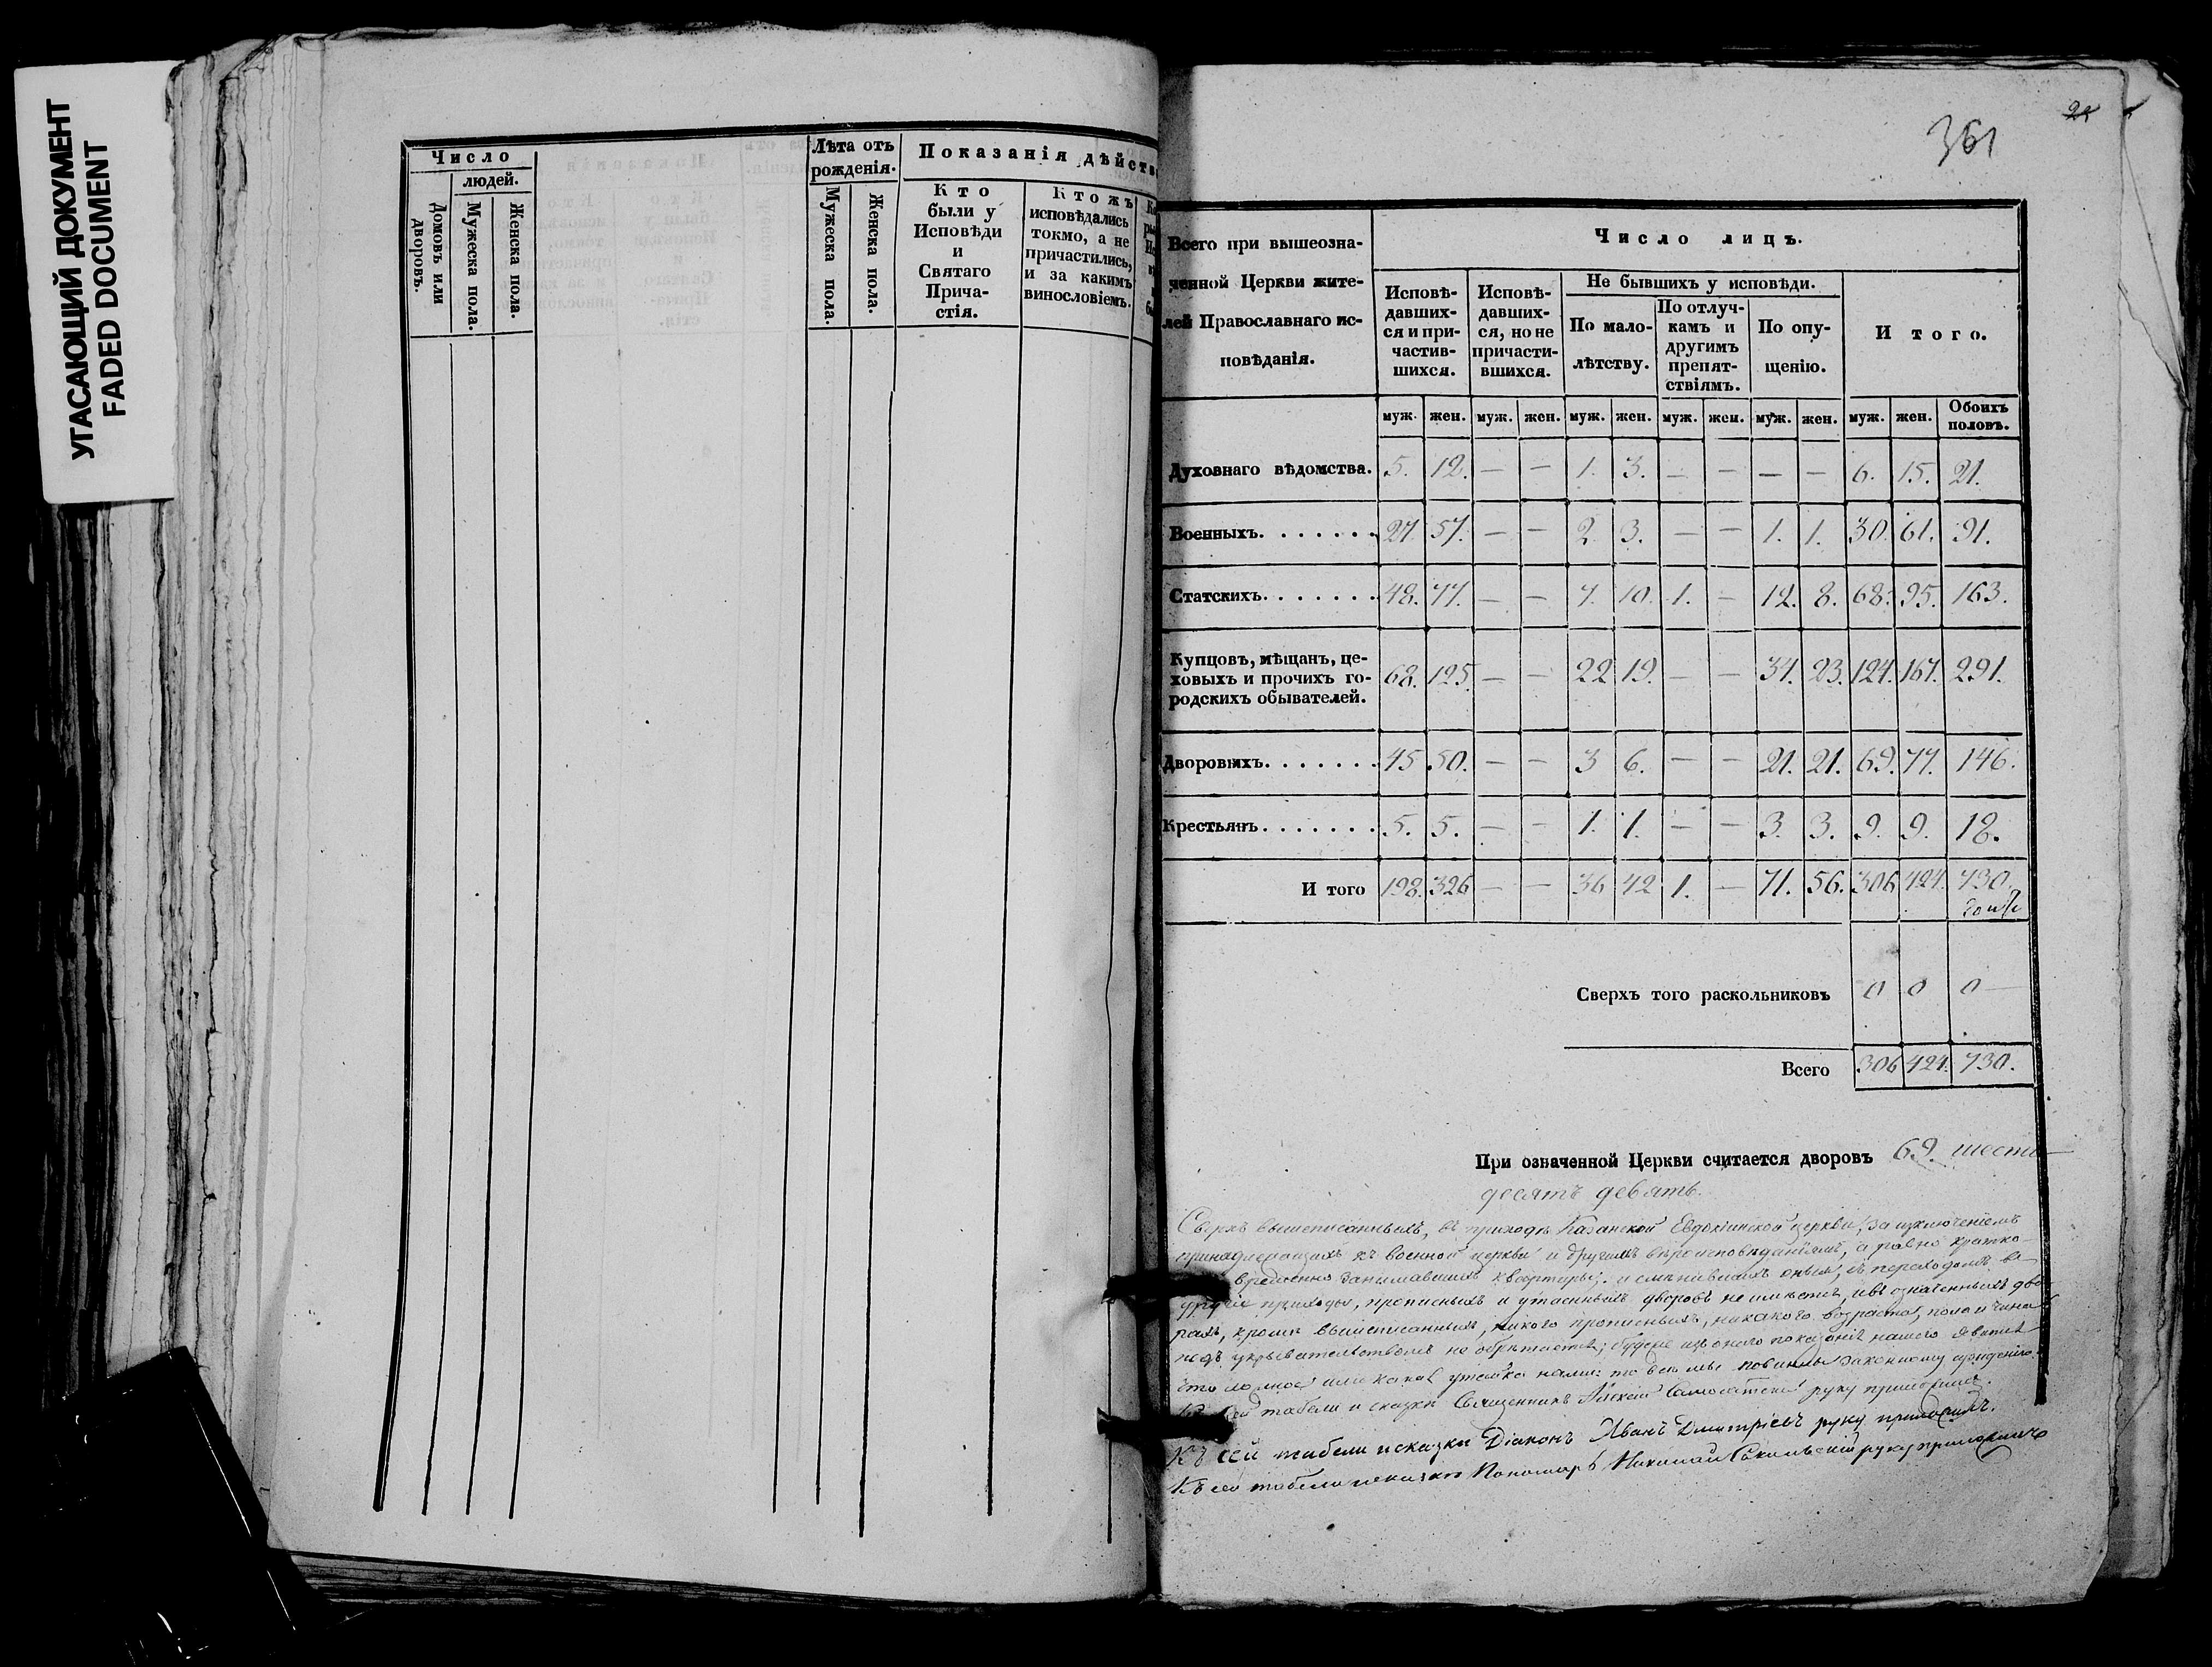 УГАСАЮЩИЙ ДОКУМЕНТ
FADED DOCUMENT
Число
людей.
Домовъ или дворовъ.
Мужеска пола.
Женска пола.
Лѣта отъ рожденія.
Мужеска пола.
Женска пола.
Показанія дѣйств
Кто были у Исповѣди и Святаго Прича-
стія.
Ктожъ исповѣдались токмо, а не причастились, и за какимъ винословіемъ.
361
24
Всего при вышеозна-
ченной Церкви жите-
лей Православнаго ис-
повѣданія.
Число лицъ.
Исповѣ-
давших-
ся и при-
частив-
шихся.
Исповѣ-
давших-
ся, но не
причасти-
вшихся.
Не бывшихъ у исповѣди.
По мало-
лѣтству.
По отлуч-
камъ и
другимъ
препят-
ствіямъ.
По опу-
щенію.
И того.
муж. жен. муж. жен. муж. жен. муж. жен. муж. жен. муж. жен. Обоихъ половъ.
Духовнаго вѣдомства. 5. 12. — — 1. 3. — — — — 6. 15. 21.
Военныхъ. 27. 57. — — 2. 3. — — 1. 1. 30. 61. 91.
Статскихъ. 48. 77. — — 7. 10. 1. — 12. 8. 68. 95. 163.
Купцовъ, мѣщанъ, це-
ховыхъ и прочихъ го-
родскихъ обывателей. 68. 125. — — 22 19. — — 34. 23. 124. 167. 291.
Дворовыхъ. 45 50. — — 3 6. — — 21. 21. 69. 77. 146.
Крестьянъ. 5. 5. — — 1. 1. — — 3. 3. 9. 9. 18.
И того 198. 326 — — 36 42 1. — 71. 56. 306 424. 730.
Сверхъ того раскольниковъ 0 0 0
Всего 306 424. 730.
При означенной Церкви считается дворовъ 69. шесть
десятъ девять.
Сверхъ вышеписанныхъ, въ приходѣ Казанской Евдокіинской церкви, за изключеніемъ
принадлежащихъ къ военной церкви и другимъ вѣроисповѣданіямъ, а равно кратко-
временно занимавшихъ квартиры, и смѣнившихъ оныя, съ переходомъ въ
другіе приходы, прописныхъ и утаенныхъ дворовъ не имѣется, и въ означенныхъ дво-
рахъ, кромѣ вышеписанныхъ, никого прописныхъ, никакого возраста, пола и чина
подъ укрывательствомъ не обрѣтается; будеже изъ онаго показанія нашего явится
что ложное или какая утайка нами: то всѣ мы повинны законному сужденію.
табели и сказки Священникъ Алексій Самосатскій руку приложилъ.
Къ сей табели и сказки Діаконъ Иванъ Дмитріевъ руку приложилъ.
Къ сей табели и сказки Пономарь Николай руку приложилъ